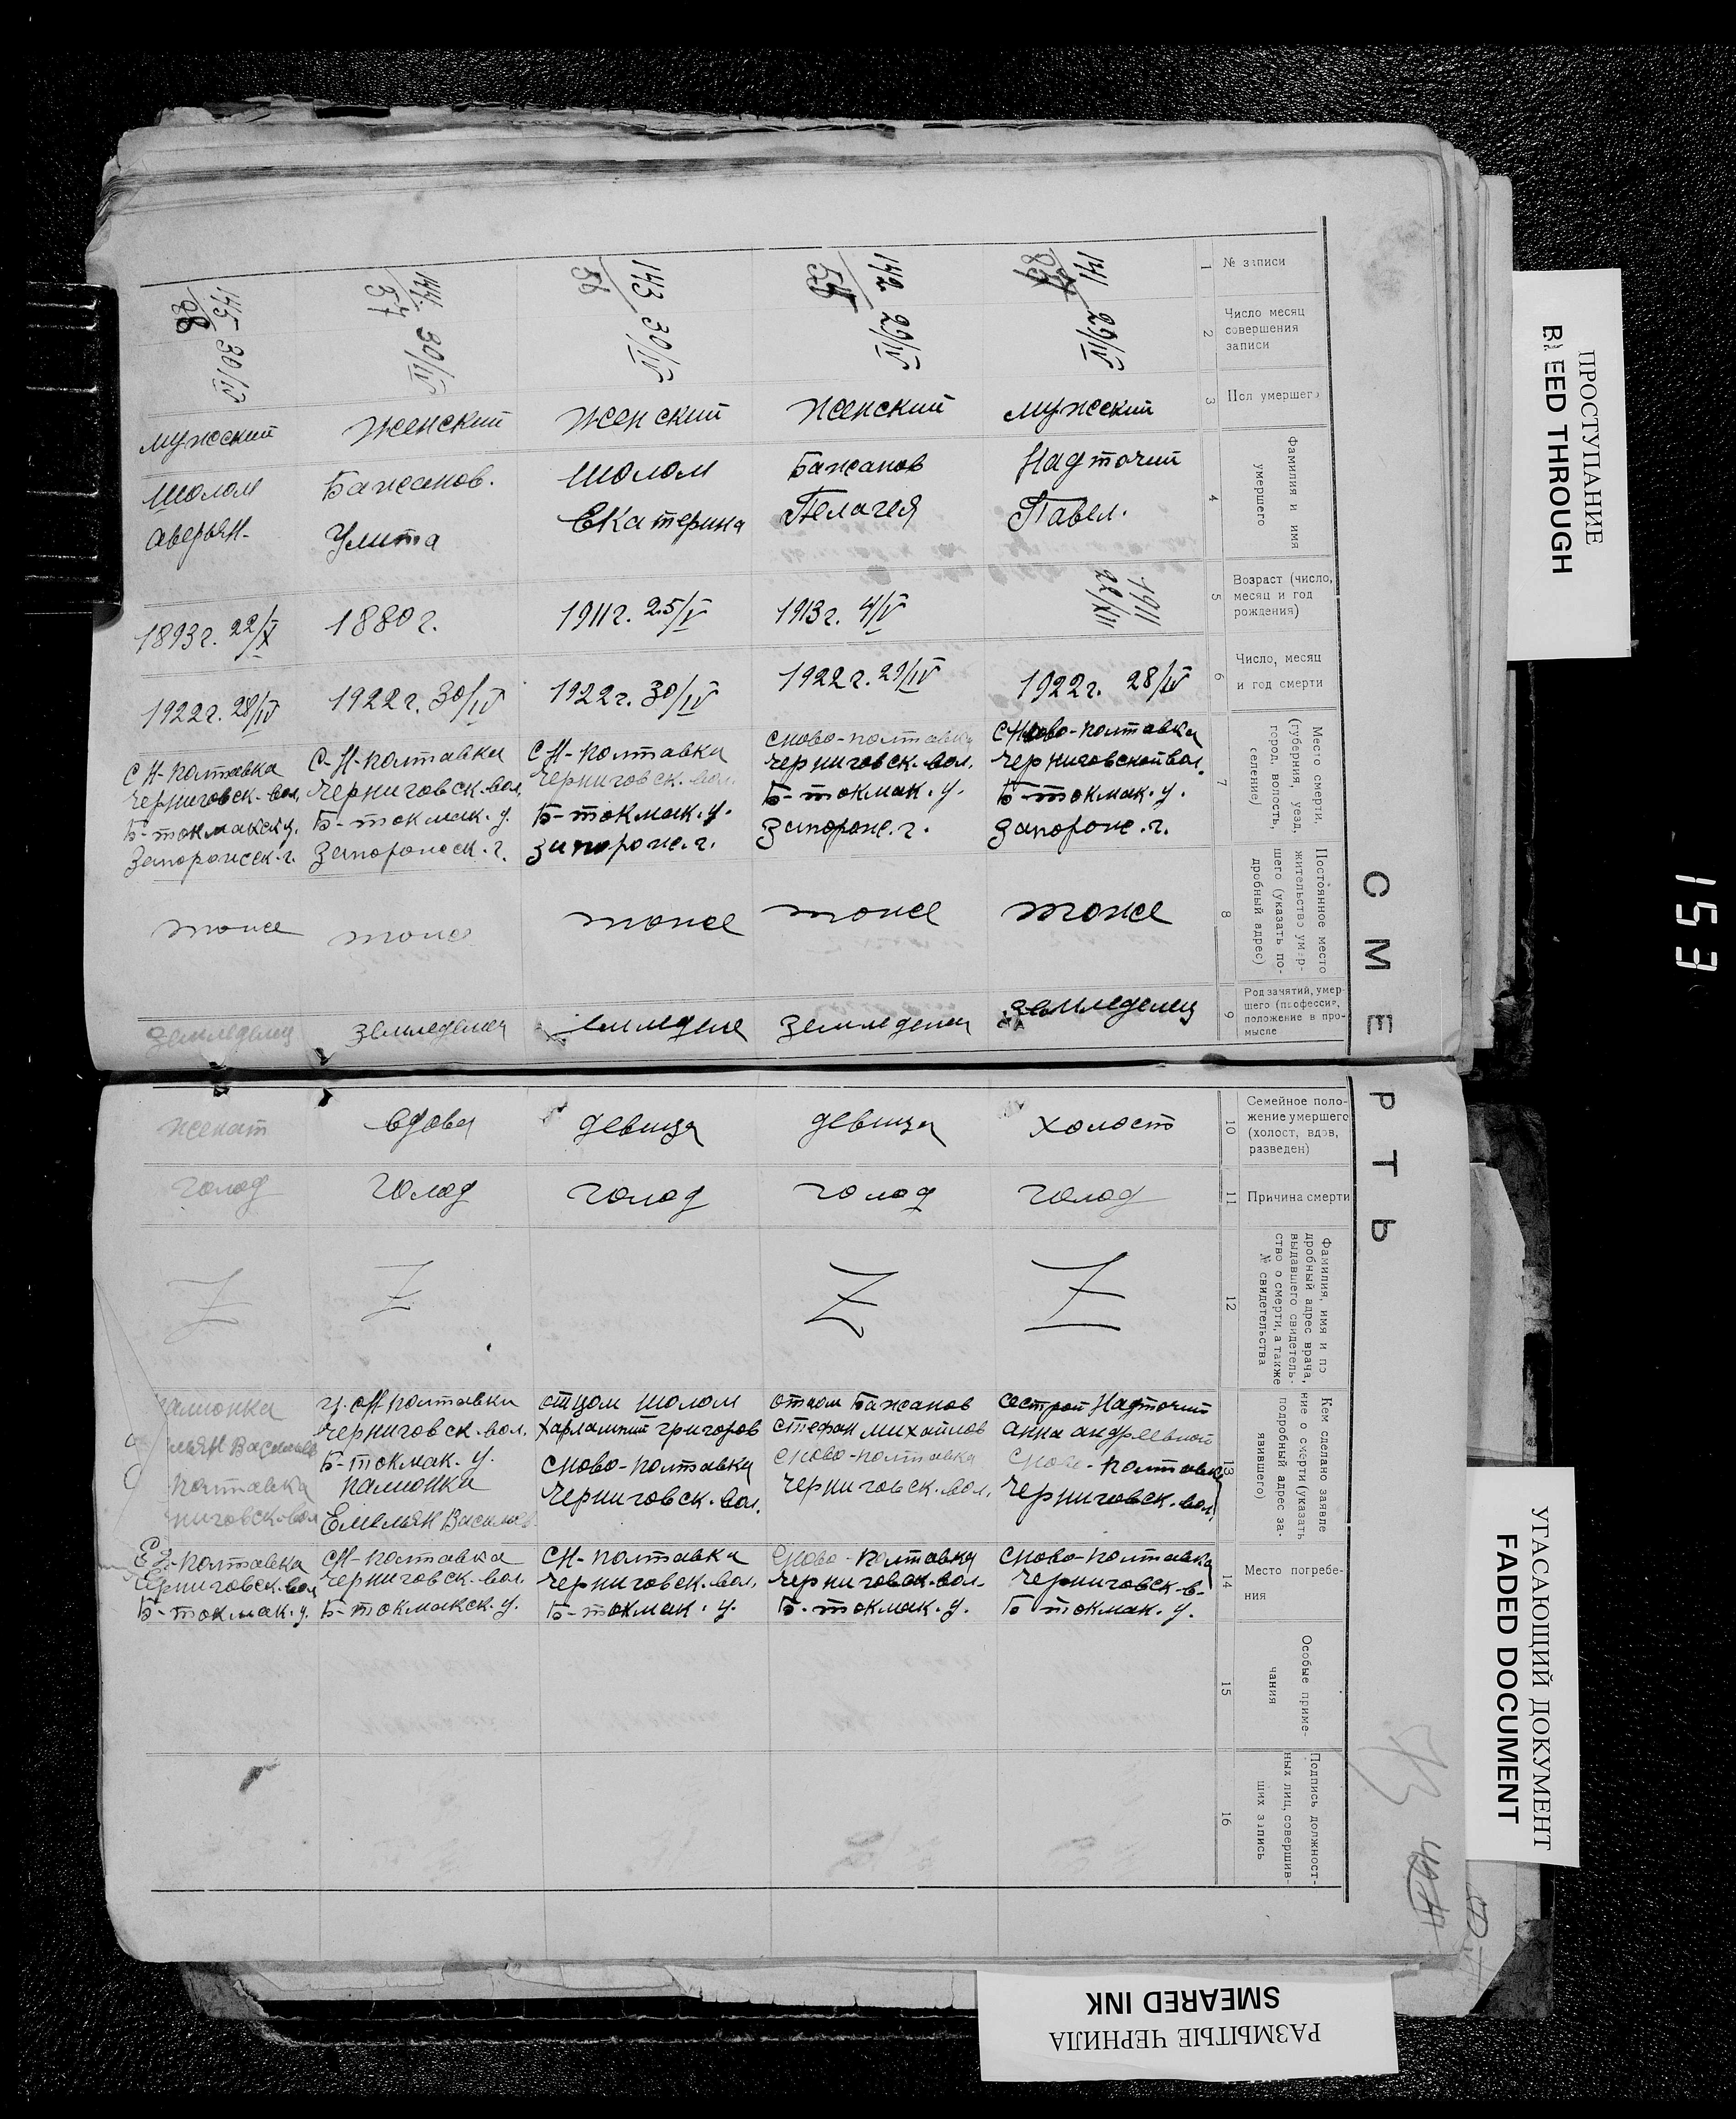 СМЕРТЬ
1
№ записи
2
Число месяц
совершения
записи
3
Пол умершего
4
Фамилия и имя
умершего
5
Возраст (число,
месяц и год
рождения)
6
Число, месяц
и год смерти
7
Место смерти,
(губерния, уезд,
город, волость,
селение)
8
Постоянное место
жительство умер-
шего (указать по-
дробный адрес)
9
Род занятий, умер-
шего (профессия,
положение в про-
мысле
10
Семейное поло-
жение умершего
(холост, вдов,
разведен)
11
Причина смерти
12
Фамилия, имя и по
дробный адрес врача,
выдавшего свидетель-
ство о смерти, а также
№ свидетельства
13
Кем сделано заявле
ние о смерти (указать
подробный адрес за-
явившего)
14
Место погребе-
ния
15
Особые приме-
чания
16
Подпись должност-
ных лиц, совершив-
ших запись
141
29/IV
мужской
Надточий
Павел.
1911
22/XII
1922г. 28/IV
с Ново-полтавка
Черниговской вол.
Б-токмак. у.
Запорож. г.
тоже
земледелец
холост
голод
Z
сестрой Надточий
Анна Андреевной
с ново-полтавка
Черниговск. вол.
с ново-полтавка
Черниговск-в-
Б токмак. у.
142
55
29/IV
Женский
Бажанов
Пелагея
1913г. 4/V
1922г. 29/IV
с ново-полтавка
Черниговск. вол.
Б-токмак. у.
Запорож. г.
тоже
земледелец
девица
голод
Z
отцом Бажанов
Стефан Михайлов
с ново-полтавка
Черниговск. вол.
с ново-полтавка
Черниговск-вол.
Б-токмак. у.
143
56
30/IV
Женский
Шолом
Екатерина
1911г. 25/V
1922г. 30/IV
с Н-полтавка
Черниговск. вол.
Б-токмак. у.
Запорож. г.
тоже
девица
голод
отцом Шолом
Харлампий Григоров
с ново-полтавка
Черниговск. вол.
с Н-полтавка
Черниговск. вол.
Б-токмак. у.
144
57
30/IV
Женский
Бажанов.
Улита
1880г.
1922г. 30/IV
с-Н-полтавка
Черниговск. вол.
Б-токмак. у.
Запорожск. г.
тоже
земледелец
вдова
голод
Z
Черниговск. вол.
Б-токмак. у.
Емельян Васильев.
с Н-полтавка
Черниговск. вол.
Б-токмакск. у.
145
88
30/IV
мужской
Шолом
Аверьян.
1893г. 22/X
1922г. 28/IV
с Н-полтавка
Черниговск-вол.
Б-токмакск у.
Запорожск. г.
тоже
земледелец
женат
голод
Z
полтавка
Черниговск. вол
Б-токмак. у.
ПРОСТУПАНИЕ
BLEED THROUGH
УГАСАЮЩИЙ ДОКУМЕНТ
FADED DOCUMENT
РАЗМЫТЫЕ ЧЕРНИЛА
SMEARED INK
153